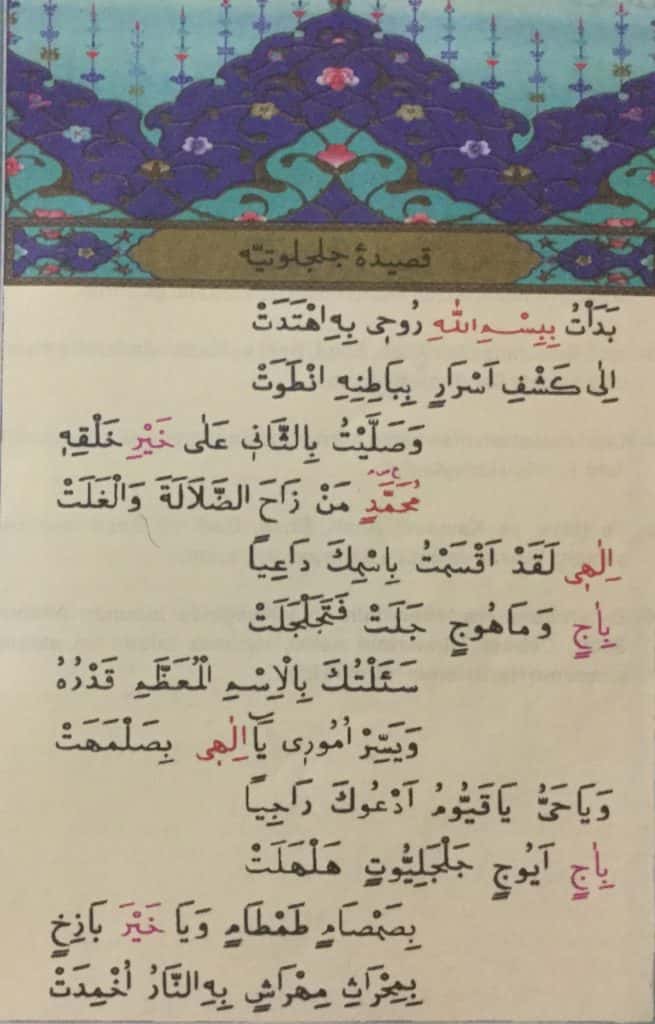 قصيدۀ جلجلوتيه
بَدَأْتُ بِبِسْمِ اللهِ رُوحِى بِهِ اهْتَدَتْ
اِلٰى كَشْفِ اَسْرَارٍ بِبَاطِنِهِ انْطَوَتْ
وَصَلَّيْتُ بِالثَّانِى عَلٰى خَيْرِ خَلْقِهِ
مُحَمَّدٍ مَنْ زَاحَ الضَّلَالَةَ وَالْغَلَتْ
اِلٰهِى لَقَدْ اَقْسَمْتُ بِاسْمِكَ دَاعِيًا
بِاٰجٍ وَمَاهُوجٍ جَلَتْ فَتَجَلْجَلَتْ
سَئَلْتُكَ بِالْاِسْمِ الْمُعَظَّمِ قَدْرُهُ
وَيَسِّرْ اُمُورِى يَا اِلٰهِى بِصَلْمَهَتْ
وَيَاحَىُّ يَاقَيُّومُ اَدْعُوكَ رَاجِيًا
بِاٰجٍ اَيُوجٍ جَلْجَلِيُّوتٍ هَلْهَلَتْ
بِصَمْصَامٍ طَمْطَامٍ وَيَا خَيْرَ بَازِخٍ
بِمِحْرَاثِ مِهْرَاشٍ بِهِ النَّارُ اُخْمِدَتْ